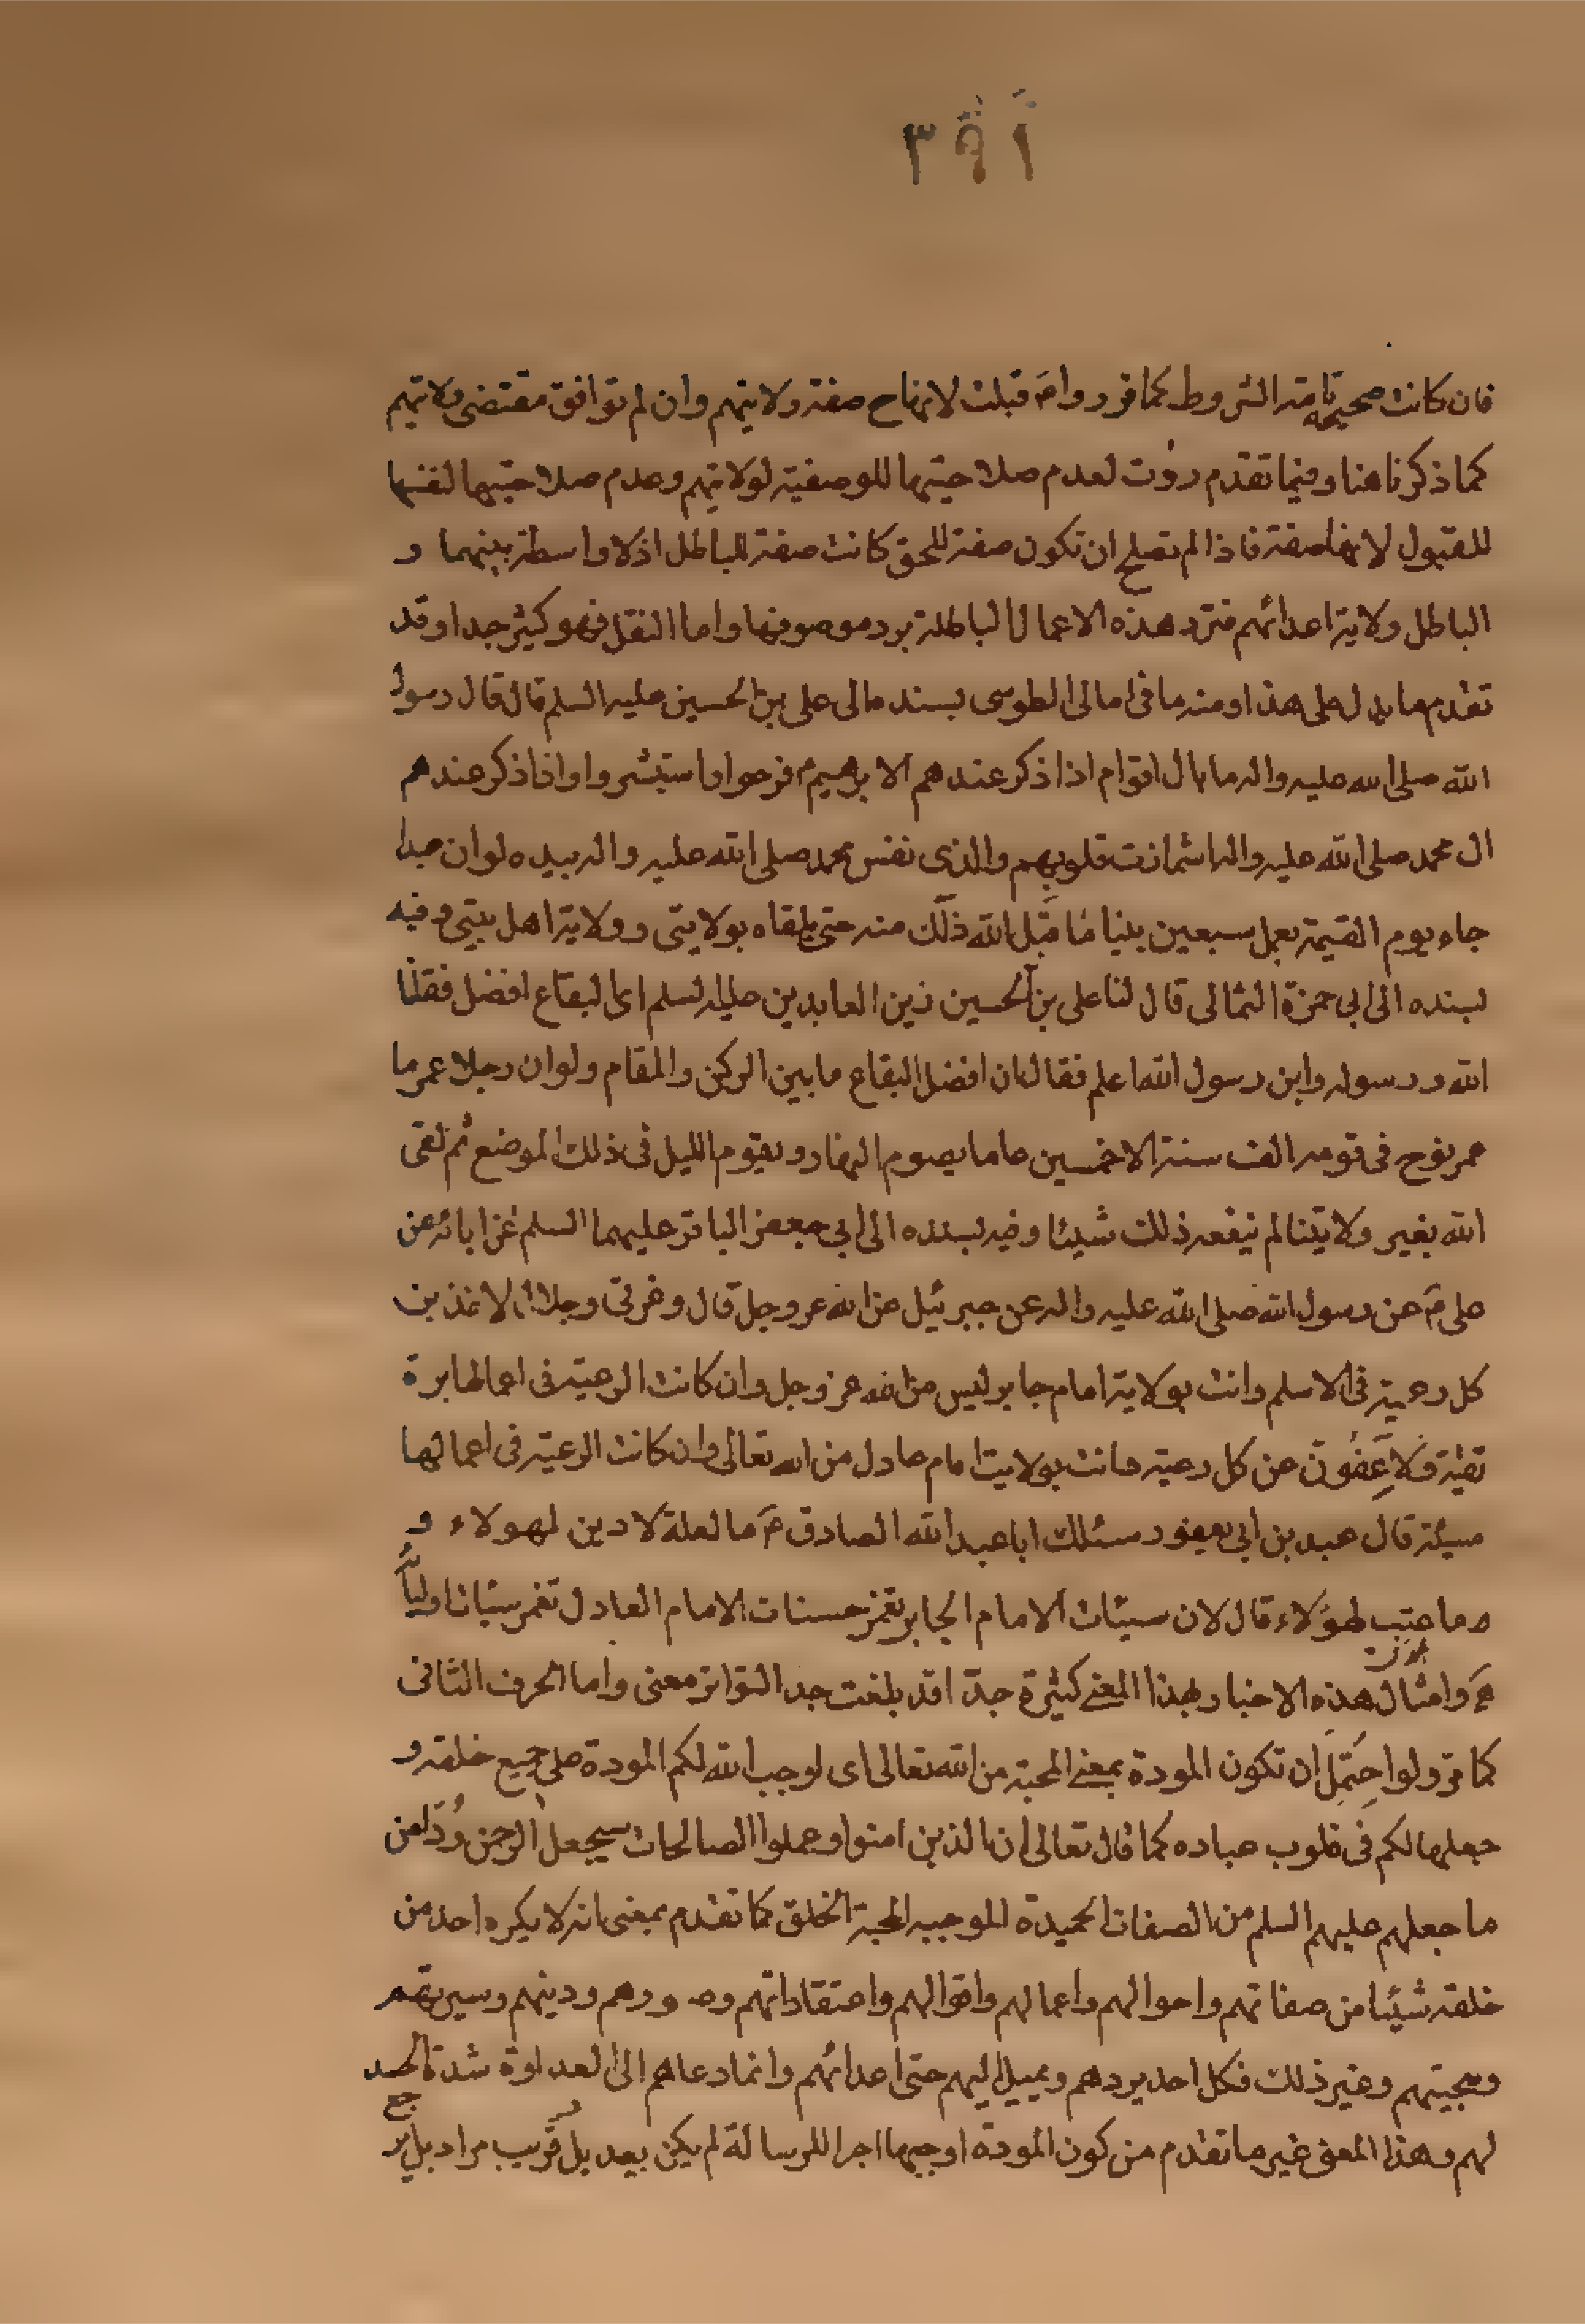 ٣٩١
فان كانت صحيحة تامة الشروط كما قرروا عۤ قبلت لانها ح صفة ولايتهم وان لم توافق مقتضى ولايتهم
كما ذكرنا هنا وفيما تقدم ردّت لعدم صلاحيتها للوصفية لولايتهم وعدم صلاحيتها لنفسها
للقبول لانها صفة فاذا لم تصلح ان تكون صفة للحق كانت صفة للباطل اذ لا واسطة بينهما و
الباطل ولاية اعدائهم فترد هذه الاعمال الباطلة برد موصوفها واما النقل فهو كثير جدا وقد
تقدم ما يدل على هذا ومنه ما فى امالى الطوسى بسنده الى على بن الحسين عليه السلم قال قال رسول
الله صلى الله عليه واله ما بال اقوام اذا ذكر عندهم ال ابرهيم عۤ فرحوا واستبشروا واذا ذكر عندهم
ال محمد صلى الله عليه واله اشمازت قلوبهم والذى نفس محمد صلى الله عليه واله بيده لو ان عبدا
جاء يوم القيمة بعمل سبعين نبيا ما قبل الله ذلك منه حتى يلقاه بولايتى وولاية اهل بيتى وفيه
بسنده الى ابى حمزة الثمالى قال لنا على بن الحسين زين العابدين عليه السلم اى البقاع افضل فقلنا
الله ورسوله وابن رسول الله اعلم فقال ان افضل البقاع ما بين الركن والمقام ولو ان رجلا عمر ما
عمر نوح فى قومه الف سنة الا خمسين عاما يصوم النهار ويقوم الليل فى ذلك الموضع ثم لقى
الله بغير ولايتنا لم ينفعه ذلك شيئا وفيه بسنده الى ابى جعفر الباقر عليهما السلم عن ابائه عن
على عۤ عن رسول الله صلى الله عليه واله عن جبرئيل عن الله عز وجل قال وعزتى وجلالى لاعذبن
كل رعية فى الاسلم دانت بولاية امام جابر ليس من الله عز وجل وان كانت الرعية فى اعمالها برة
تقية ولاعفون عن كل رعية دانت بولايت امام عادل من الله تعالى وان كانت الرعية فى اعمالها
مسيئة قال عبد بن ابى يعفور سئلت ابا عبد الله الصادق عۤ ما لعلة لا دين لهولاء و
ما عتب لهؤلاء قال لان سيئات الامام الجابر تغمز حسنات الامام العادل تغمر سيئات اوليائه
عۤ وامثال هذه الاخبار بهذا المعنى كثيرة جدّا قد بلغت حد التواتر معنى واما الحرف الثانى
كما مر ولو احتمل ان تكون المودة بمعنى المحبة من الله تعالى اى لوجب الله لكم المودة على جميع خلقه و
جعلها لكم فى قلوب عباده كما قال تعالى ان الذين امنوا وعملوا الصالحات سيجعل الرحمن ودّا من
ما جعلهم عليهم السلم من الصفات الحميدة الموجبه لمحبة الخلق كما تقدم بمعنى انه لا يكره احد من
خلقه شيئا من صفاتهم واحوالهم واعمالهم واقوالهم واعتقاداتهم وصورهم ودينهم وسيرتهم
وسجيتهم وغير ذلك فكل احد يردهم ويميل اليهم حتى اعدائهم وانما دعاهم الى العداوة شدة الحسد
لهم وهذا المعنى غير ما تقدم من كون المودة اوجبها اجرا للرسالة لم يكن بعيد بل قريب مراد بل